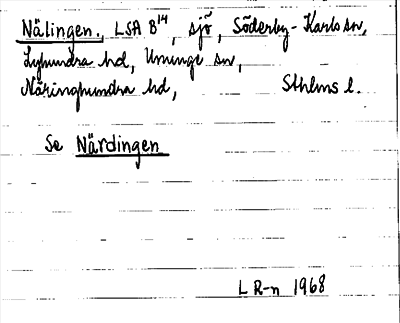 Nälingen, LSA B¹⁴, sjö, Söderby-Karls sn,
Lyhundra hd, Ununge sn,
Näringhundra hd, Sthlms l.
Se Närdingen
L R-n 1968